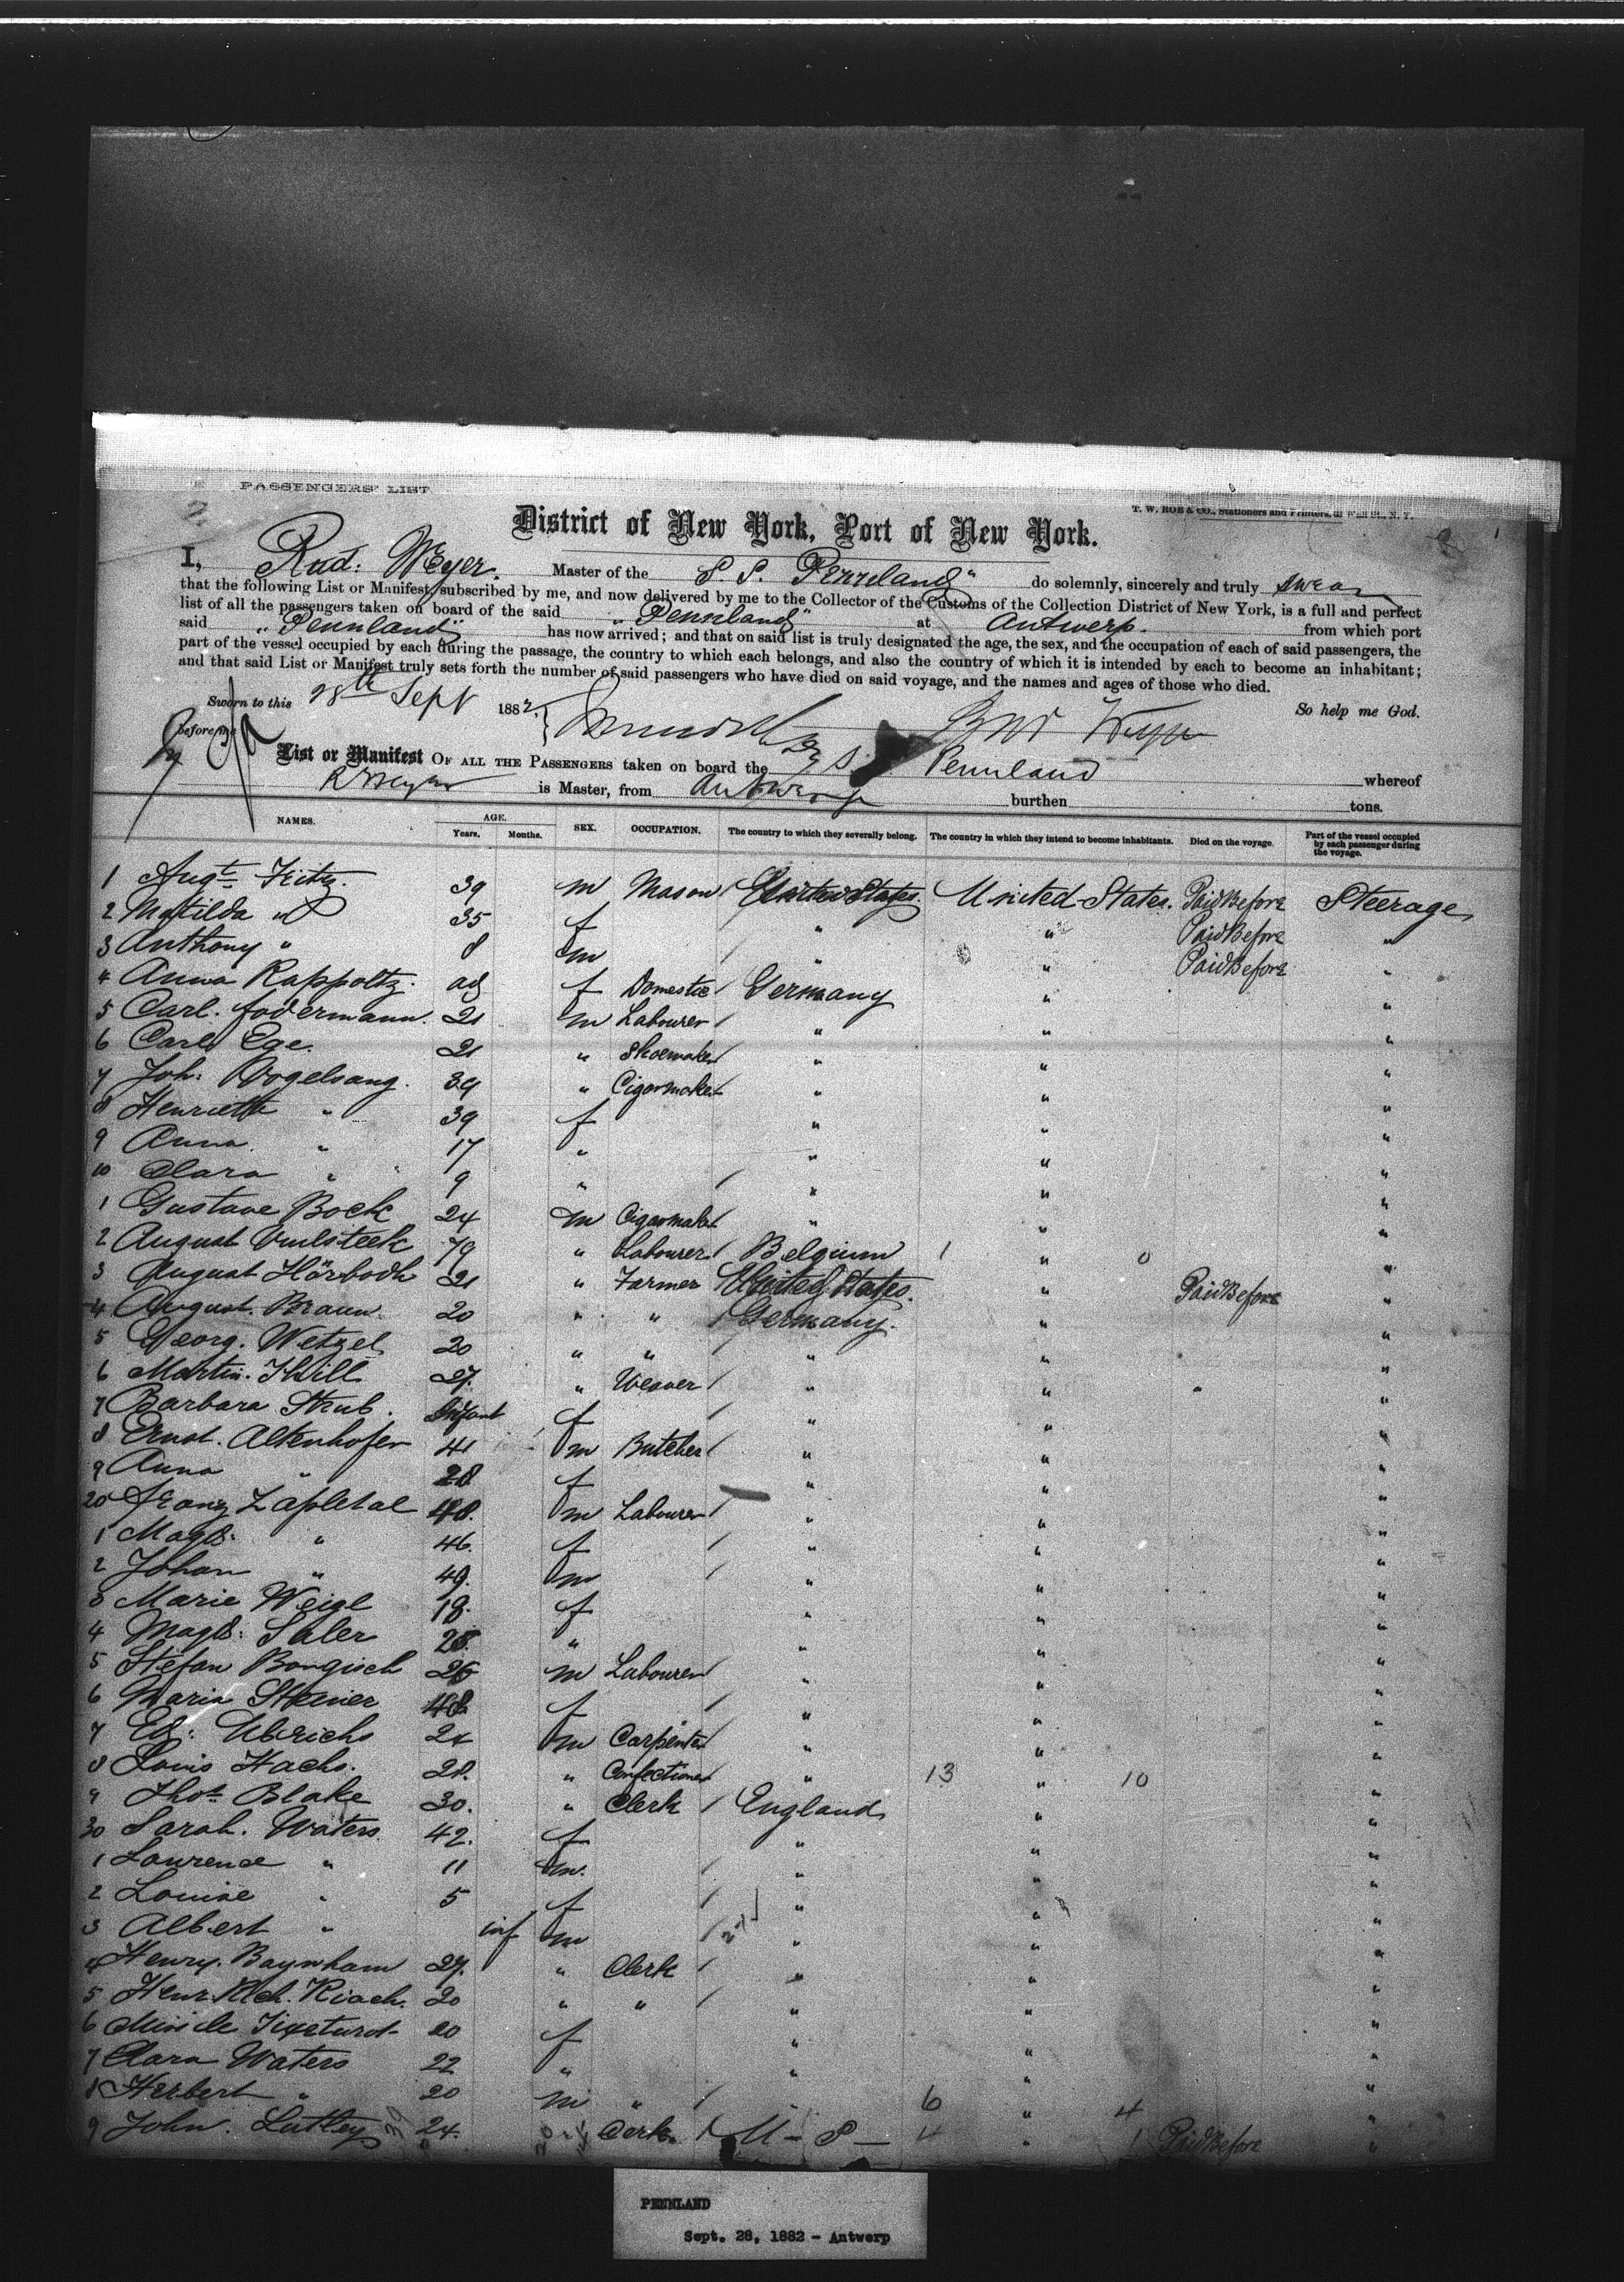 PASSENGERS' LIST
T. W. ROE & CO., Stationers and Printers, Wall St., N. Y.
District of New York, Port of New York.
I, Rud: Weyer. Master of the S. S. Pennland" do solemnly, sincerely and truly swear
that the following List or Manifest, subscribed by me, and now delivered by me to the Collector of the Customs of the Collection District of New York, is a full and perfect
list of all the passengers taken on board of the said "Pennland" at Antwerp. from which port
said "Pennland" has now arrived; and that on said list is truly designated the age, the sex, and the occupation of each of said passengers, the
part of the vessel occupied by each during the passage, the country to which each belongs, and also the country of which it is intended by each to become an inhabitant;
and that said List or Manifest truly sets forth the number of said passengers who have died on said voyage, and the names and ages of those who died.
Sworn to this 28th Sept 1882. So help me God.
before me
List or Manifest OF ALL THE PASSENGERS taken on board the S. Pennland whereof
R Weyer is Master, from Antwerp burthen tons.
NAMES. AGE. Years. Months. SEX. OCCUPATION. The country to which they severally belong. The country in which they intend to become inhabitants. Died on the voyage. Part of the vessel occupied by each passenger during the voyage.
1 Augt Fritz. 39 m Mason / United States. United States. Paid Before Steerage
2 Matilda " 35 f " " Paid Before "
3 Anthony " 8 m / " " Paid Before "
4 Anna Rappoltz. ad f Domestic / Germany " "
5 Carl. Jodermann. 21 m Labourer / " " "
6 Carl Ege. 21 " Shoemaker / " " "
7 Joh: Vogelsang. 39 " Cigarmaker / " " "
8 Henriette " 39 f " " "
9 Anna " 17 " " " "
10 Clara " 9 " / " " "
1 Gustave Bock 24 m Cigarmaker / " " "
2 August 79 " Labourer / Belgium 1 " 0 "
3 August Hörbodh 21 " Farmer United States. " Paid Before "
4 August. Braun. 20 " " / Germany. " "
5 Georg. Wetzel 20 " " / " " "
6 Martin. Thill 27. " Weaver / " " "
7 Barbara Strub. Infant f / " " "
8 Ernst. Altenhofer 41 m Butcher / " " "
9 Anna " 28 f " " "
20 Franz Zapletal 48. m Labourer / " " "
1 Magd: " 46. f / " " "
2 Johan " 49. m / " " "
3 Marie Weigl 18. f " " "
4 Magd: Saler 28. " " " "
5 Stefan Bongisch 26 m Labourer / " " "
6 Maria Steiner 48 f / " " "
7 Ed: Ulrichs 24 m Carpenter / " " "
8 Louis Hachs. 28. " Confectioner / " 13 " 10 "
9 Thos. Blake 30. " Clerk / England " "
30 Sarah. Waters 42. f " " "
1 Laurence " 11 m. / " " "
2 Louise " 5 f / " " "
3 Albert " inf m / " " "
4 Henry. Baynham 27. " Clerk / " " "
5 Henr. Rch. Riach. 20 " " / " " "
6 20 f " " "
7 Clara Waters 22 " " " "
8 Herbert " 20 m " / " 6 " 4 "
9 John. Lutley 24. " Clerk / U - S - 4 " 1 Paid Before "
PENNLAND
Sept. 28, 1882 - Antwerp